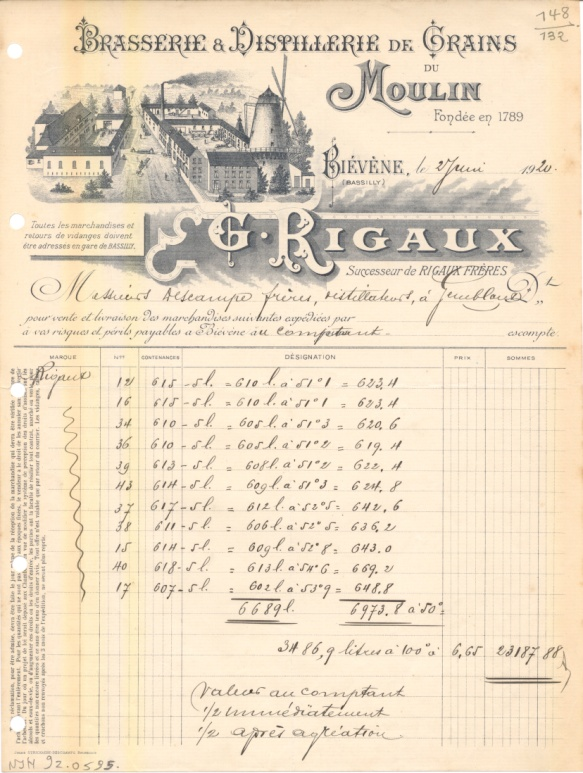 148
132
BRASSERIE & DISTILLERIE DE GRAINS
DU
MOULIN
Fondée en 1789
BIÉVÈNE, le 2 Juin 1920.
(BASSILLY)
Toutes les marchandises et
retours de vidanges doivent
être adressés en gare de BASSILLY.
G. RIGAUX
Successeur de RIGAUX FRÈRES
Messieurs Descampe frères, distillateurs, à Gembloux Dt
pour vente et livraison des marchandises suivantes expédiées par
à vos risques et périls, payables à Biévène au comptant escompte
MARQUE Nos CONTENANCES DÉSIGNATION PRIX SOMMES
Rigaux
12 615 - 5 l. = 610 l. à 51°1 = 623,4
16 615 - 5 l. = 610 l. à 51°1 = 623,4
34 610 - 5 l. = 605 l. à 51°3 = 620,6
36 610 - 5 l. = 605 l. à 51°2 = 619,4
39 613 - 5 l. = 608 l. à 51°2 = 622,4
43 614 - 5 l. = 609 l. à 51°3 = 624,8
37 617 - 5 l. = 612 l. à 52°5 = 642,6
38 611 - 5 l. = 606 l. à 52°5 = 636,2
15 614 - 5 l. = 609 l. à 52°8 = 643.0
40 618 - 5 l. = 613 l. à 54°6 = 669,2
17 607 - 5 l. = 602 l. à 53°9 = 648.8
6689 l. 6973.8 à 50°
3486,9 litres à 100° à 6,65 23187 88
Valeur au comptant
1/2 immédiatement
1/2 après agréation
NJH 92.0595.